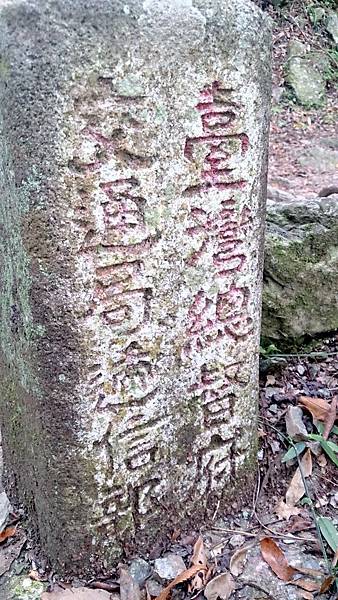 臺灣總督府
交通局遞信部